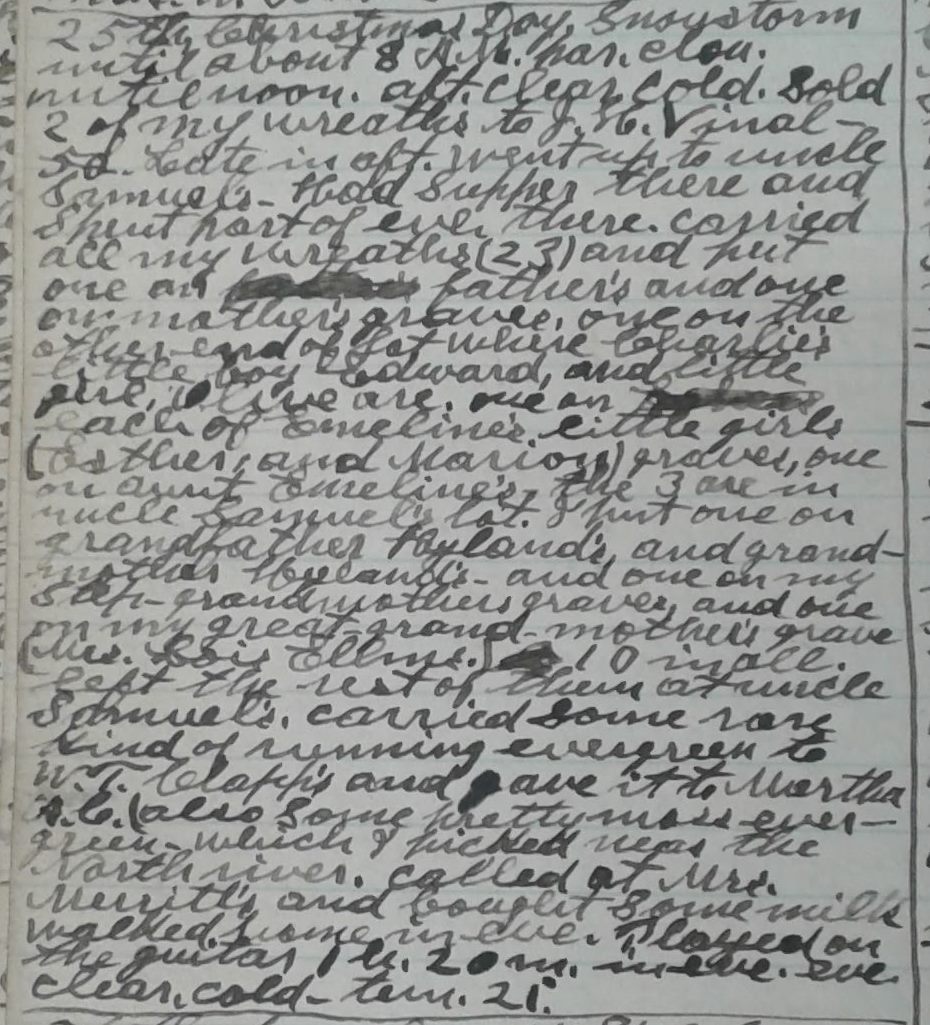 25th, Christmas Day, Snowstorm
until about 8 A.M. par. clou.
until noon. aft. clear, cold. Sold
2 of my wreaths to J. H. Vinal-
50. Late in aft. went up to uncle
Samuel's - Had Supper there and
Spent part of eve. there. carried
all my wreaths (23) and put
one on father's and one
on mother's graves, one on the
other end of lot where Charlie's
little boy Edward, and little
girl, Olive are. one on
each of Emeline's little girls
(Esther, and Marion) graves, one
on aunt Emeline's, the 3 are in
uncle Samuel's lot. I put one on
grandfather Hyland's, and grand-
mother Hyland's - and one on my
Step-grandmothers graves, and one
on my great-grand-mother's grave
(Mrs. Lois Ellms.) 10 in all.
Left the rest of them at uncle
Samuel's. carried some rare
kind of running evergreen to
W.T. Clapp's and gave it to Martha
(also some pretty moss ever-
green - which I picked near the
North river. called at Mrs.
Merritt's and bought Some milk
walked home in eve. Played on
the guitar 1 h. 20 m. in eve. eve.
clear, cold - tem. 21°